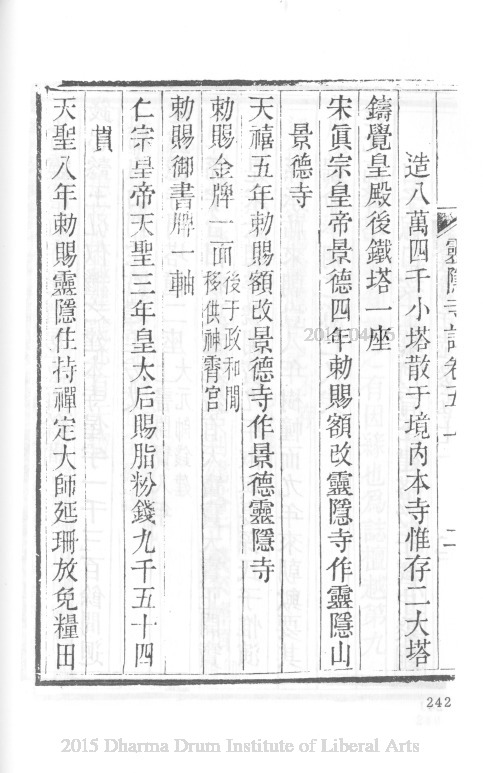 靈隱寺誌卷五上 二
造八萬四千小塔散于境內本寺惟存二大塔
鑄覺皇殿後鐵塔一座
宋眞宗皇帝景德四年勅賜額改靈隱寺作靈隱山
景德寺
天禧五年勅賜額改景德寺作景德靈隱寺
勅賜金牌一面 後于政和間
移供神霄宮
勅賜御書牌一軸
仁宗皇帝天聖三年皇太后賜脂粉錢九千五十四
貫
天聖八年勅賜靈隱住持禪定大師延珊放免糧田
242
2015 Dharma Drum Institute of Liberal Arts